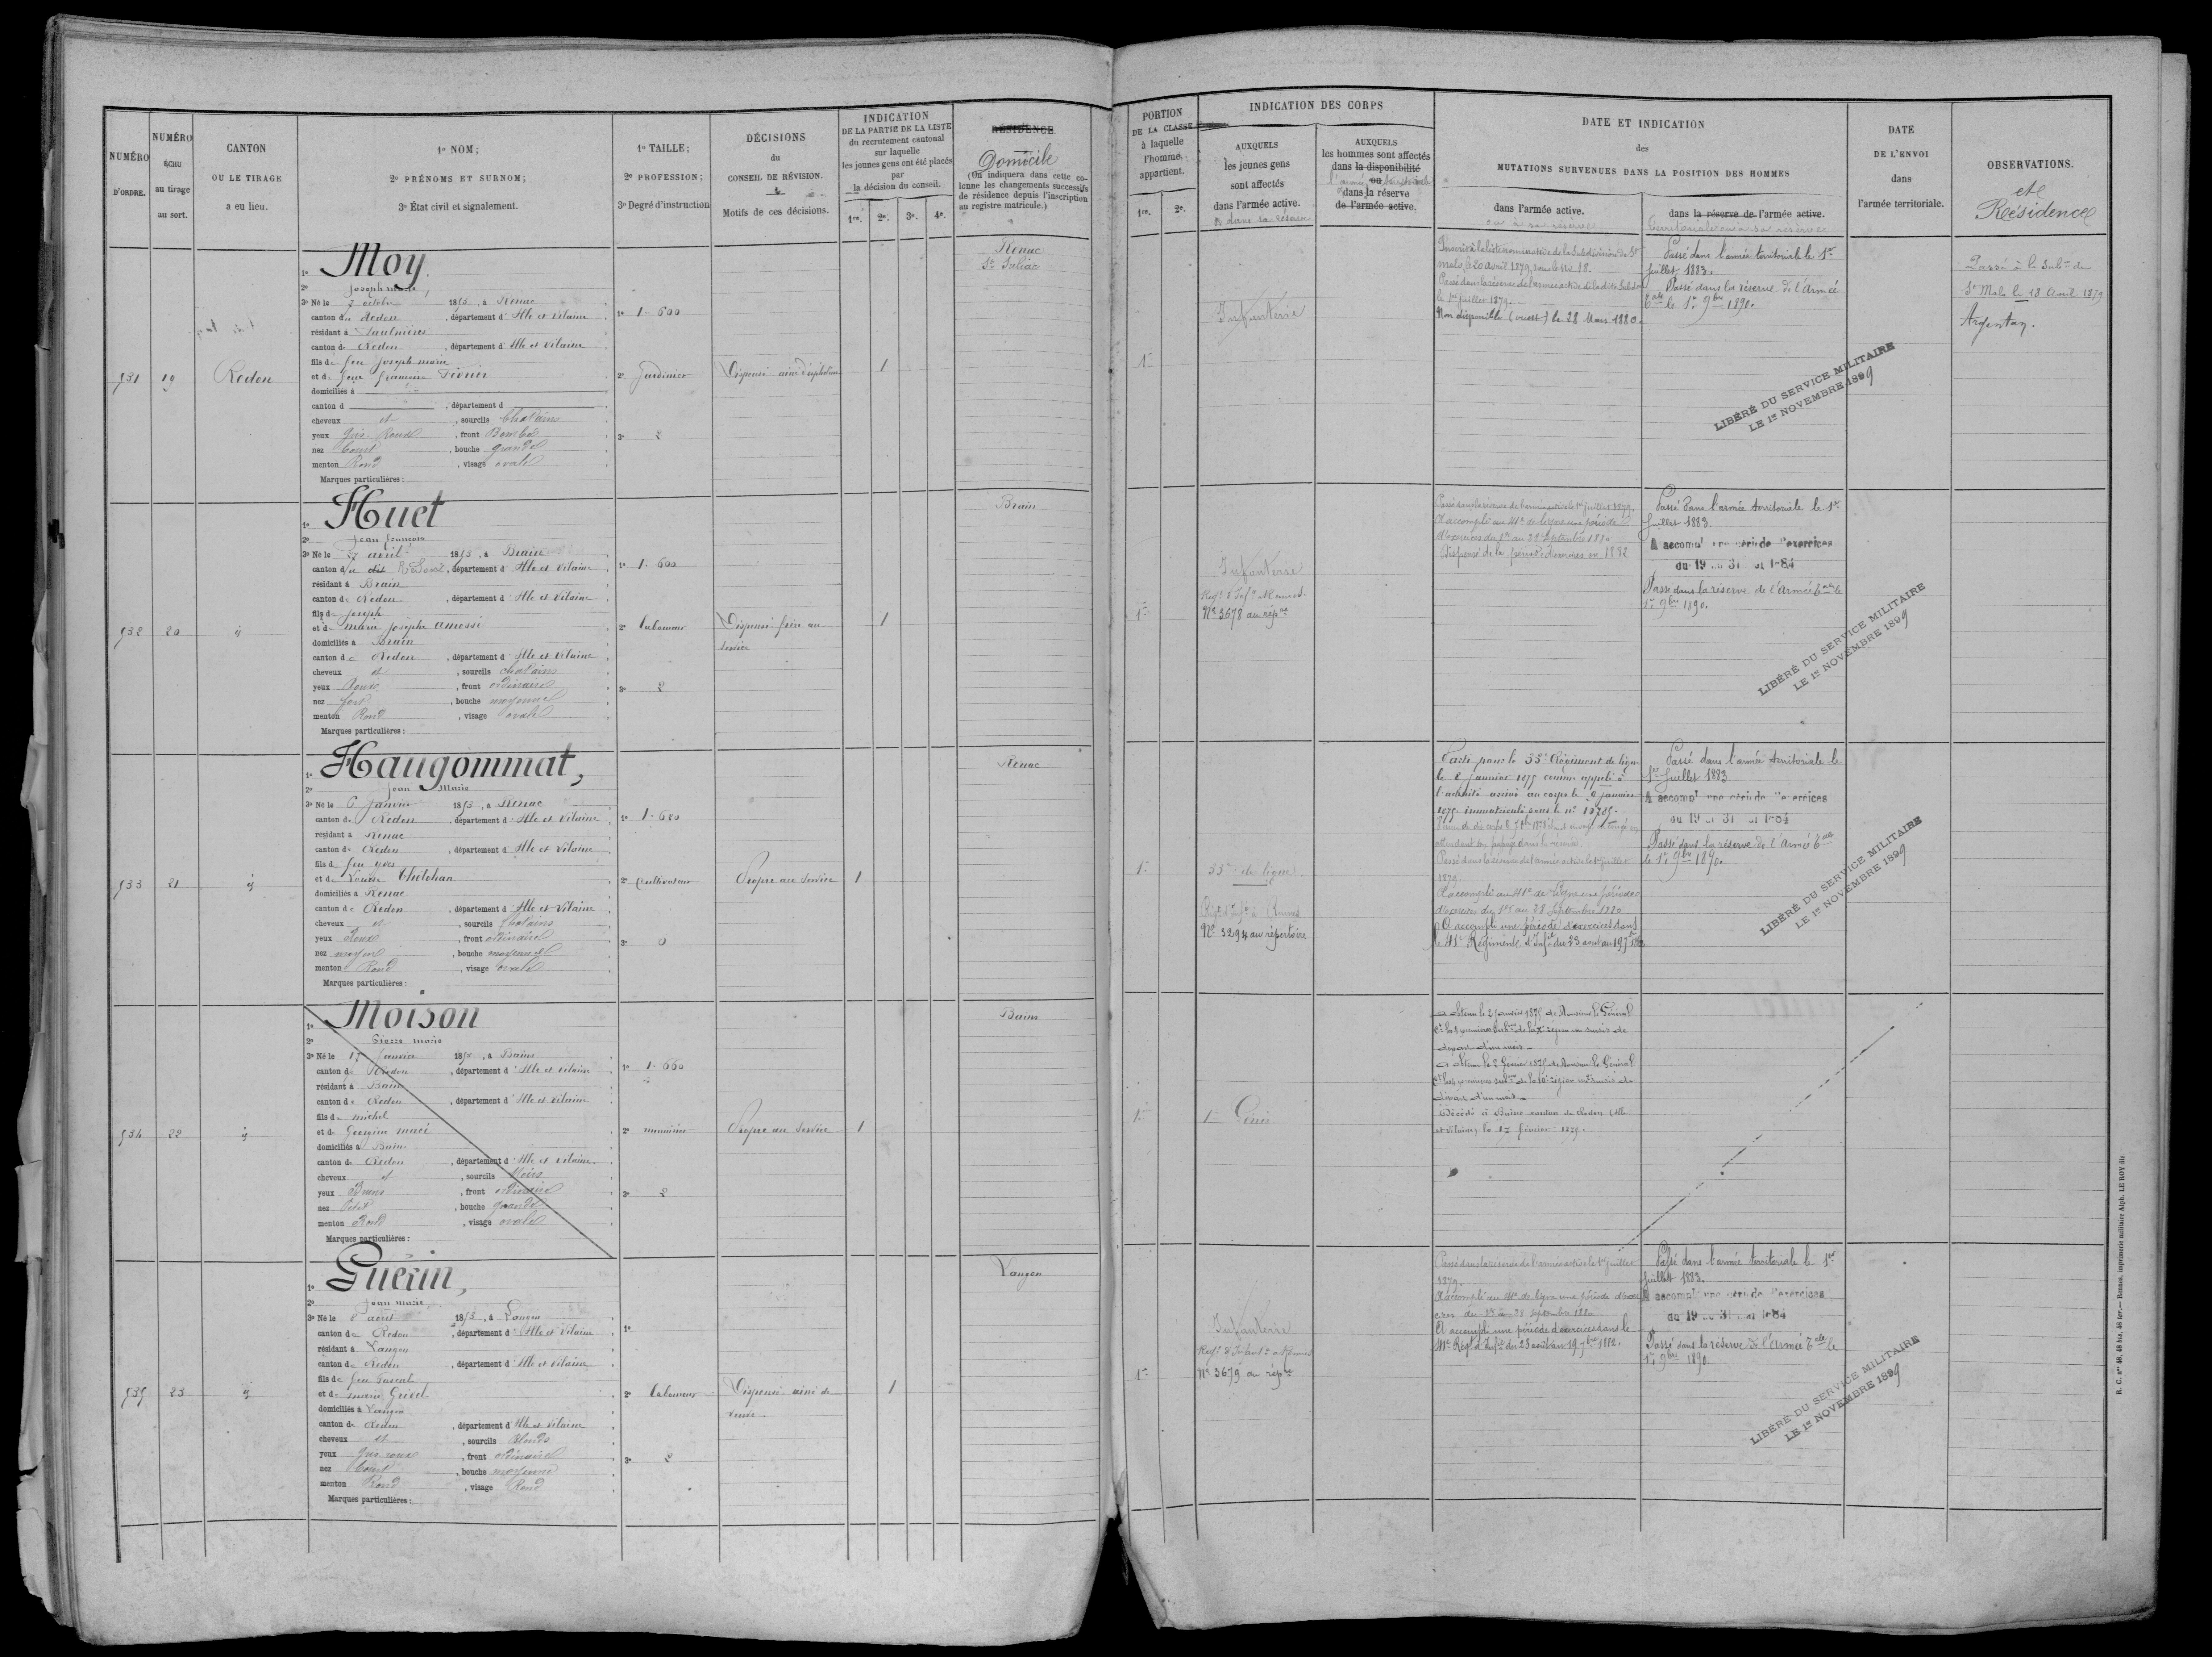 NUMÉRO
D'ORDRE.
NUMÉRO
ÉCHU
au tirage
au sort.
CANTON
OU LE TIRAGE
a eu lieu.
1º NOM;
2º PRÉNOMS ET SURNOM;
3º État civil et signalement.
1º TAILLE;
2º PROFESSION;
3º Degré d'instruction
DÉCISIONS
du
CONSEIL DE RÉVISION.
Motifs de ces décisions.
INDICATION
DE LA PARTIE DE LA LISTE
du recrutement cantonal
sur laquelle
les jeunes gens ont été placés
par
la décision du conseil.
1re. 2e. 3e. 4e.
RÉSIDENCE
Domicile
(On indiquera dans cette co-
lonne les changements successifs
de résidence depuis l'inscription
au registre matricule.)
PORTION
DE LA CLASSE
à laquelle
l'homme
appartient.
1re. 2e.
INDICATION DES CORPS
AUXQUELS
les jeunes gens
sont affectés
dans l'armée active.
AUXQUELS
les hommes sont affectés
dans la disponibilité
ou
dans la réserve
de l'armée active.
DATE ET INDICATION
des
MUTATIONS SURVENUES DANS LA POSITION DES HOMMES
dans l'armée active.
ou sa réserve
dans la réserve de l'armée active.
DATE
DE L'ENVOI
dans
l'armée territoriale.
OBSERVATIONS.
et
Résidence
931
19
Redon
1º Moy
2º Joseph marie,
3º Né le 7 octobre 1853, à Renac
canton de Redon, département d'Ille et Vilaine
résidant à Saulnières
canton de Redon, département d'Ille et Vilaine
fils de feu Joseph marie
et de feue françoise
domiciliés à
canton d , département d
cheveux et , sourcils Chatains
yeux Gris Roux, front Bombé
nez Court, bouche grande
menton Rond, visage ovale
Marques particulières :
1º 1.600
2º Jardinier
3º 2
Dispensé ainé d'orphelins
1
Renac
St Suliac
1re
Infanterie
Inscrit à la liste nominative de la Subdivision de St
malo le 20 avril 1879, sous le No 18.
Passé dans la réserve de l'armée active de la dite Subdon
le 1er juillet 1879.
Non disponible (ouest) le 28 Mars 1880.
Passé dans l'armée territoriale le 1er
juillet 1883.
Passé dans la réserve de l'Armée
Tale le 1er 9bre 1890.
LIBÉRÉ DU SERVICE MILITAIRE
LE 1er NOVEMBRE 1899
Passé à la Subon de
St Malo le 18 Avril 1879
Argentan.
932
20
id
1º Huet
2º Jean françois
3º Né le 27 avril 1853, à Brain
canton du dit, département d'Ille et Vilaine
résidant à Brain
canton de Redon, département d'Ille et Vilaine
fils de Joseph
et de marie Josèphe amossé
domiciliés à Brain
canton de Redon, département d'Ille et Vilaine
cheveux et , sourcils chatains
yeux Roux, front ordinaire
nez fort, bouche moyenne
menton Rond, visage ovale
Marques particulières :
1º 1.600
2º Laboureur
3º 2
Dispensé frère au
service
1
Brain
1re
Infanterie
Regt d'Infie Rennes.
No 3678 au répre
Passé dans la réserve de l'armée active le 1er juillet 1879.
A accompli au 41e de ligne une période
d'exercices du 1er au 28 Septembre 1880
Dispensé de la période d'exercices en 1882
Passé dans l'armée territoriale le 1er
juillet 1883.
A accompli une période d'exercices
du 19 au 31 mai 1884
Passé dans la réserve de l'Armée Tale le
1er 9bre 1890.
LIBÉRÉ DU SERVICE MILITAIRE
LE 1er NOVEMBRE 1899
933
21
id
1º Haugommat,
2º Jean Marie
3º Né le 6 Janvier 1853, à Renac
canton de Redon, département d'Ille et Vilaine
résidant à Renac
canton de Redon, département d'Ille et Vilaine
fils de feu yves
et de Louise Thélohan
domiciliés à Renac
canton de Redon, département d'Ille et Vilaine
cheveux et , sourcils Chatains
yeux Roux, front ordinaire
nez moyen, bouche moyenne
menton Rond, visage ovale
Marques particulières :
1º 1.680
2º Cultivateur
3º 0
Propre au service
1
Renac
1re
55e de ligne.
Regt d'Infie à Rennes
No 3294 au répertoire
Parti pour le 55e Régiment de ligne
le 8 janvier 1875 comme appelé à
l'activité arrivé au corps le 9 janvier
1875 immatriculé sous le no 13785.
attendant son passage dans la réserve.
Passé dans la réserve de l'armée active le 1er juillet
1879.
A accompli au 41e de ligne une période
d'exercices du 1er au 28 Septembre 1880
A accompli une période d'exercices dans
le 41e Régiment d'Infie du 23 août au 19 7bre 1882
Passé dans l'armée territoriale le
1er Juillet 1883
A accompli une période d'exercices
du 19 au 31 mai 1884
Passé dans la réserve de l'Armée Tale
le 1er 9bre 1890.
LIBÉRÉ DU SERVICE MILITAIRE
LE 1er NOVEMBRE 1899
934
22
id
1º Moison
2º Pierre marie
3º Né le 17 Janvier 1853, à Bains
canton de Redon, département d'Ille et Vilaine
résidant à Bains
canton de Redon, département d'Ille et Vilaine
fils de michel
et de Georgine macé
domiciliés à Bains
canton de Redon, département d'Ille et Vilaine
cheveux et , sourcils Noirs
yeux Bruns, front ordinaire
nez Petit, bouche grande
menton Rond, visage ovale
Marques particulières :
1º 1.660
2º menuisier
3º 2
Propre au service
1
Bains
1re
1er Génie
A obtenu le 2 Janvier 1875 de Monsieur le Général
Ct les 4 premières subons de la Xe région un sursis de
départ d'un mois.
A obtenu le 2 février 1875 de Monsieur le Général
Ct les premières subons de la 10e région un sursis de
départ d'un mois.
Décédé à Bains canton de Redon (Ille
et Vilaine) le 17 février 1875.
935
23
id
1º Guérin,
2º Jean marie
3º Né le 8 août 1853, à Langon
canton de Redon, département d'Ille et Vilaine
résidant à Langon
canton de Redon, département d'Ille et Vilaine
fils de feu Pascal
et de marie Grivel
domiciliés à Langon
canton de Redon, département d'Ille et Vilaine
cheveux et , sourcils Blonds
yeux Gris roux, front ordinaire
nez Court, bouche moyenne
menton Rond, visage Rond
Marques particulières :
1º
2º Laboureur
3º 2
Dispensé ainé de
veuve.
1
Langon
1re
Infanterie
Regt d'Infantie à Rennes
No 3679 au répre
Passé dans la réserve de l'armée active le 1er juillet
1879.
A accompli au 41e de ligne une période d'exer
cices du 1er au 28 Septembre 1880
A accompli une période d'exercices dans le
41e Regt d'Infie du 23 août au 19 7bre 1882.
Passé dans l'armée territoriale le 1er
juillet 1883.
A accompli une période d'exercices
du 19 au 31 mai 1884
Passé dans la réserve de l'Armée Tale le
1er 9bre 1890
LIBÉRÉ DU SERVICE MILITAIRE
LE 1er NOVEMBRE 1899
R. C. nos 48, 48 bis, 48 ter.— Rennes, imprimerie militaire Alph. LE ROY fils